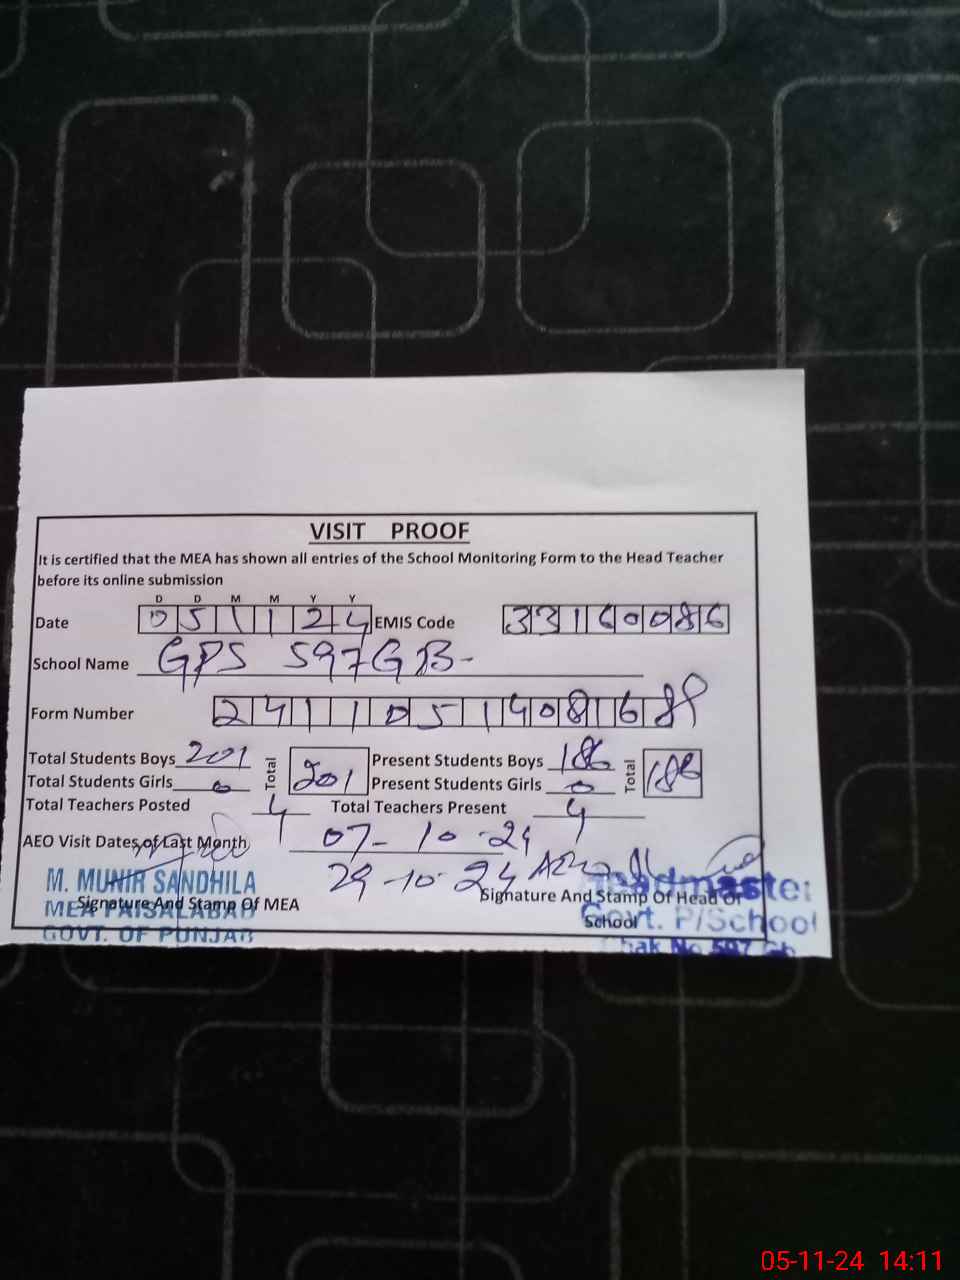 VISIT PROOF
It is certified that the MEA has shown all entries of the School Monitoring Form to the Head Teacher
before its online submission
D D M M Y Y
Date 051124 EMIS Code 33160086
School Name GPS 597GB-
Form Number
Total Students Boys 201 Total 201 Present Students Boys 186 Total 186
Total Students Girls 0 Present Students Girls 0
Total Teachers Posted 4 Total Teachers Present 4
AEO Visit Dates of Last Month 07-10-24
29-10-24
M. MUNIR SANDHILA
MEA FAISALABAD
GOVT. OF PUNJAB
Signature And Stamp Of MEA
Signature And Stamp Of Head Of
School
Headmaster
Govt. P/School
Chak No 597 Gb
05-11-24 14:11